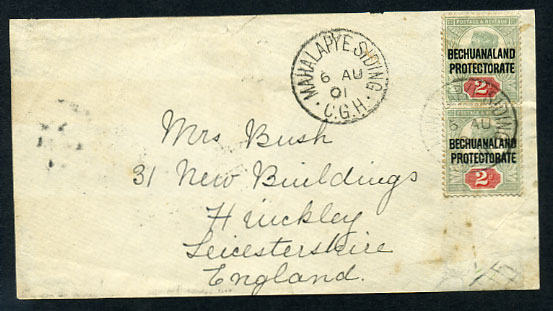 MAHALAPYE SIDING
6 AU
01
C.G.H.
POSTAGE & REVENUE
BECHUANALAND
PROTECTORATE
2d
POSTAGE & REVENUE
6 AU
BECHUANALAND
PROTECTORATE
2d
Mrs Bush
31 New Buildings
Hinckley
Leicestershire
England.